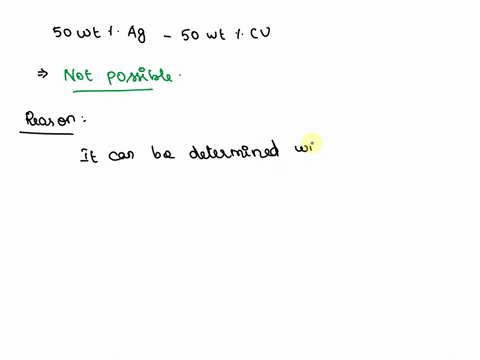 50 wt %. Ag - 50 wt %. CU
⇒ Not possible.
Reason:
It can be determined wi